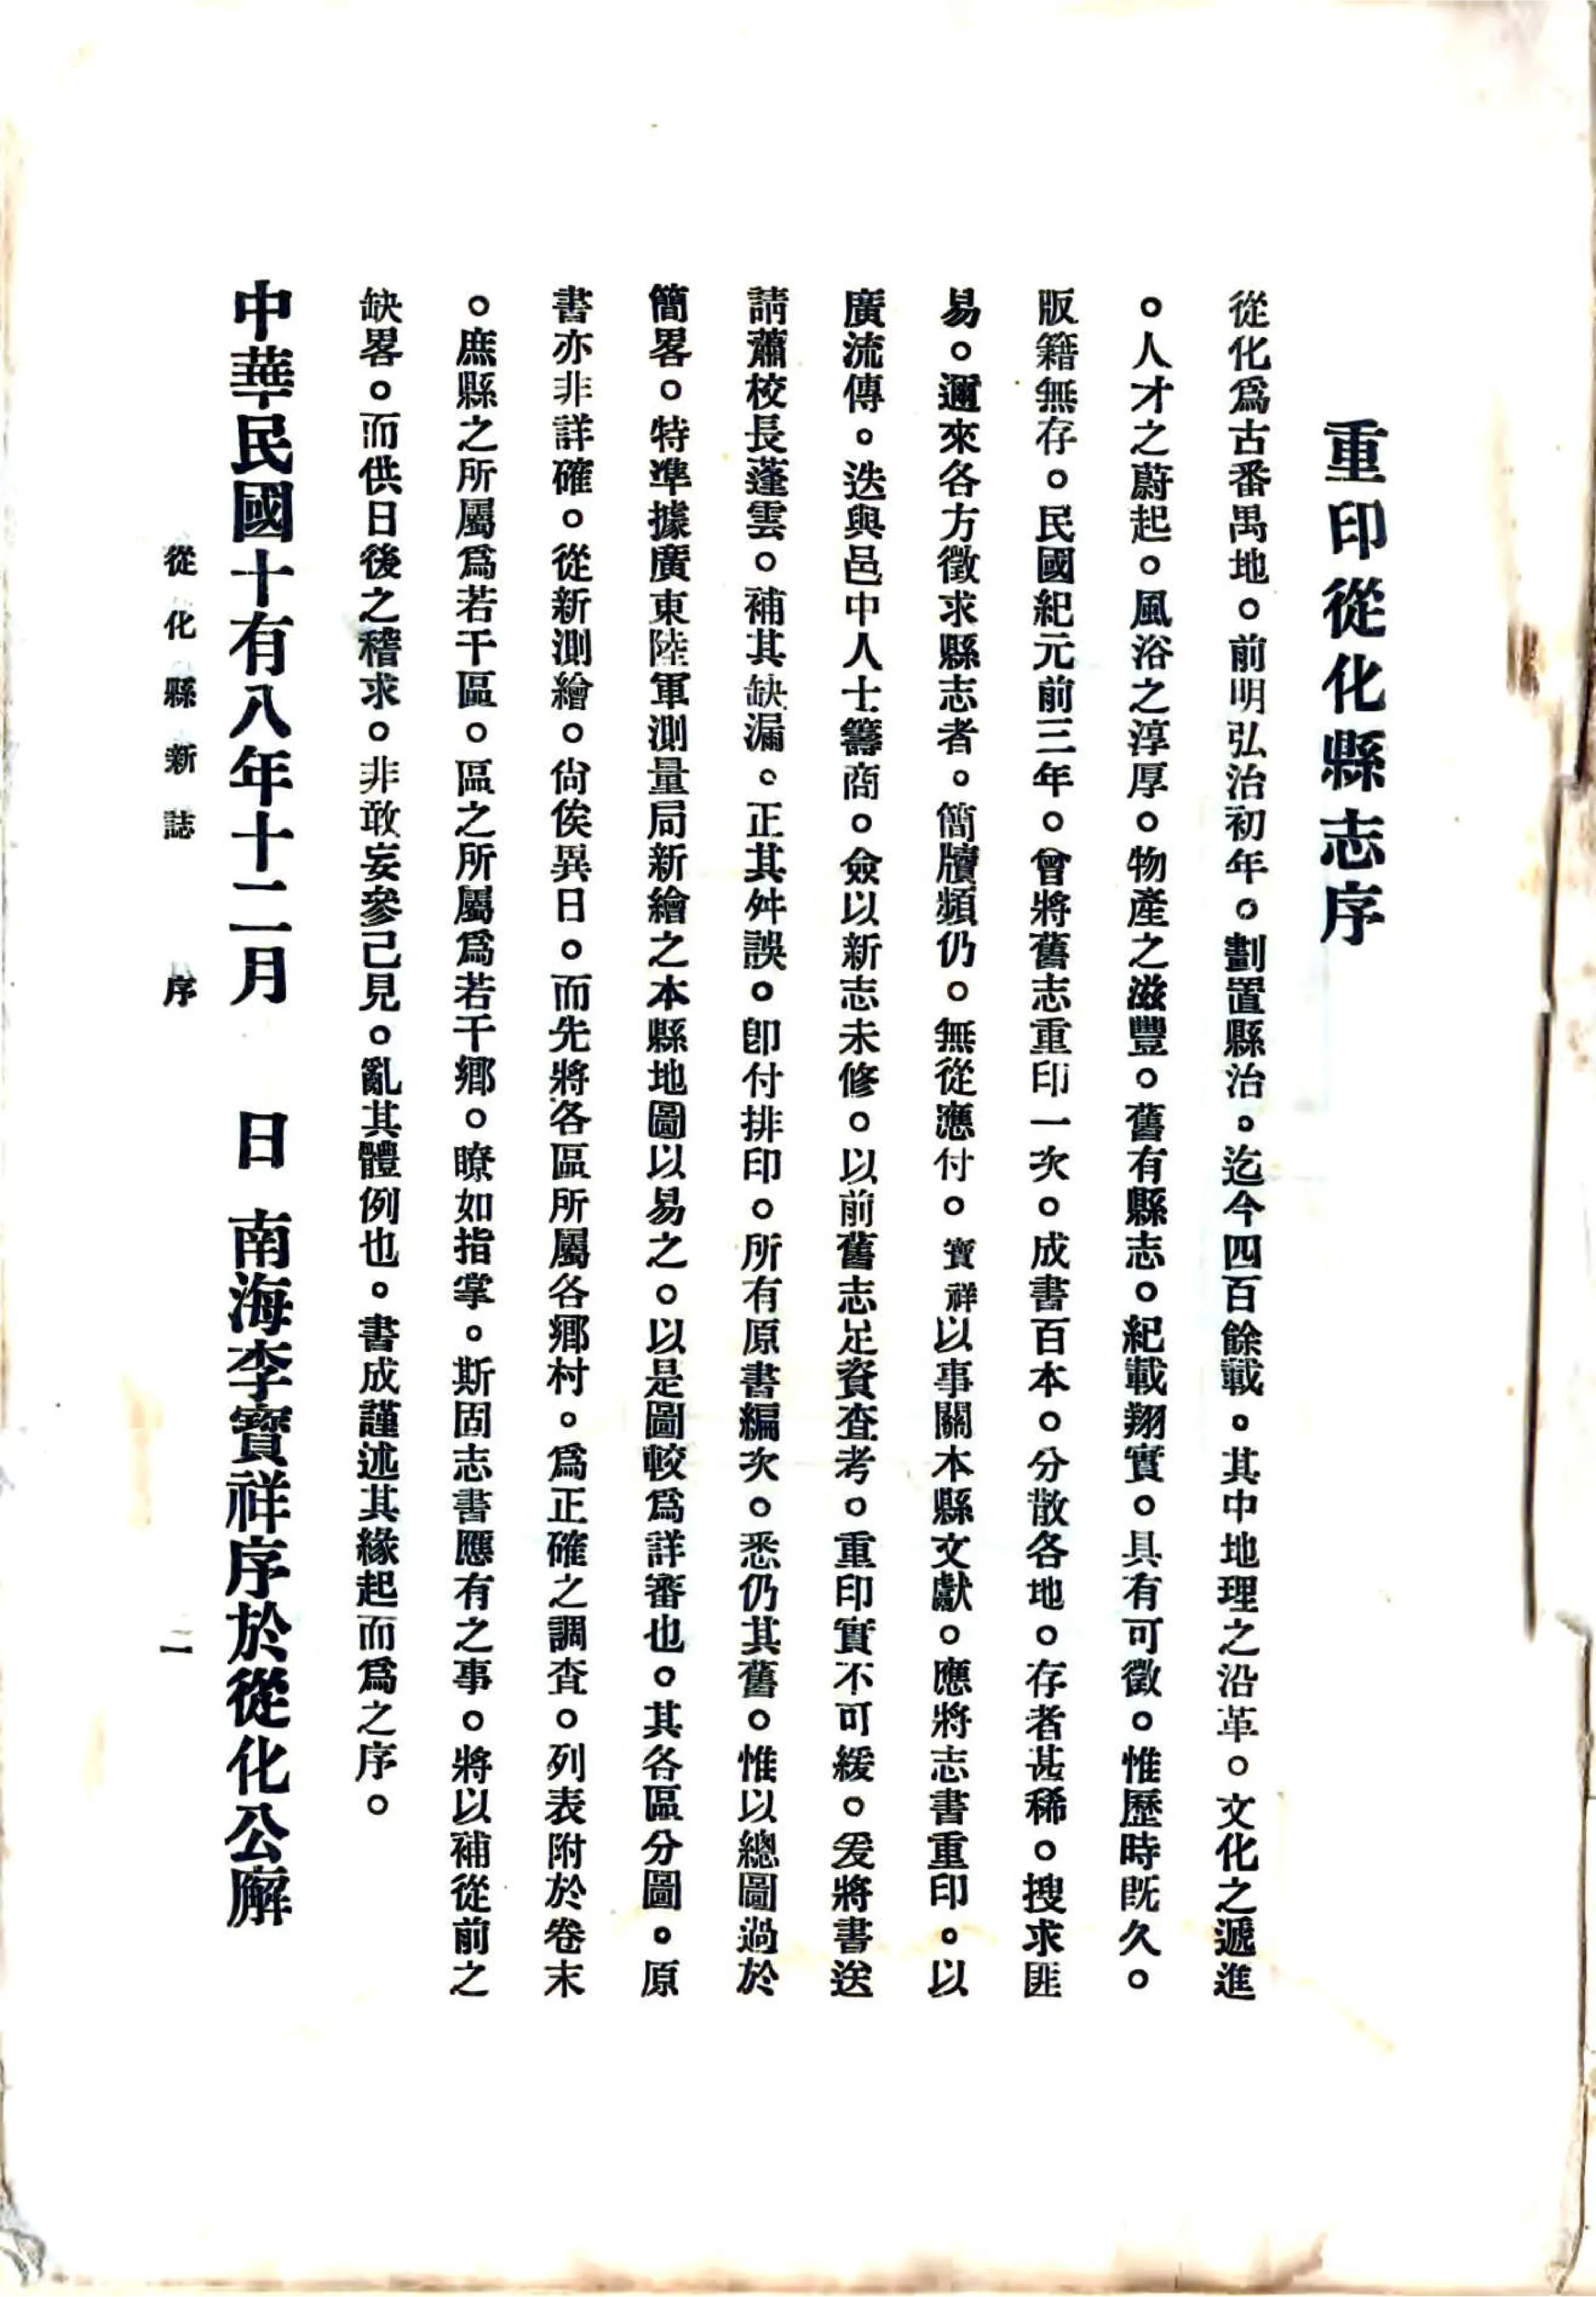 重印從化縣志序
從化爲古番禺地。前明弘治初年。劃置縣治。迄今四百餘載。其中地理之沿革。文化之遞進
。人才之蔚起。風浴之淳厚。物產之滋豐。舊有縣志。紀載翔實。具有可徵。惟歷時既久。
版籍無存。民國紀元前三年。曾將舊志重印一次。成書百本。分散各地。存者甚稀。搜求匪
易。邇來各方徵求縣志者。簡牘頻仍。無從應付。寶祥以事關本縣文獻。應將志書重印。以
廣流傳。迭與邑中人士籌商。僉以新志未修。以前舊志足資查考。重印實不可緩。爰將書送
請蕭校長蓬雲。補其缺漏。正其舛誤。卽付排印。所有原書編次。悉仍其舊。惟以總圖過於
簡畧。特準據廣東陸軍測量局新繪之本縣地圖以易之。以是圖較爲詳審也。其各區分圖。原
書亦非詳確。從新測繪。尙俟異日。而先將各區所屬各鄉村。爲正確之調查。列表附於卷末
。庶縣之所屬爲若干區。區之所屬爲若干鄉。暸如指掌。斯固志書應有之事。將以補從前之
缺畧。而供日後之稽求。非敢妄參己見。亂其體例也。書成謹述其緣起而爲之序。
中華民國十有八年十二月 日 南海李寶祥序於從化公廨
從化縣新誌 序 二